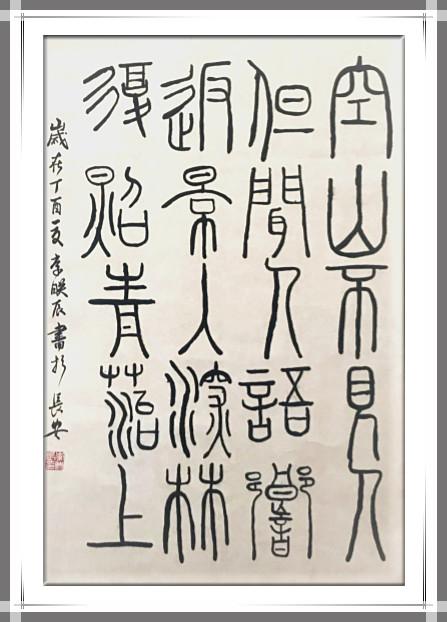 空山不見人
但聞人語響
返景入深林
復照青菭上
歲在丁酉夏李映辰書於長安